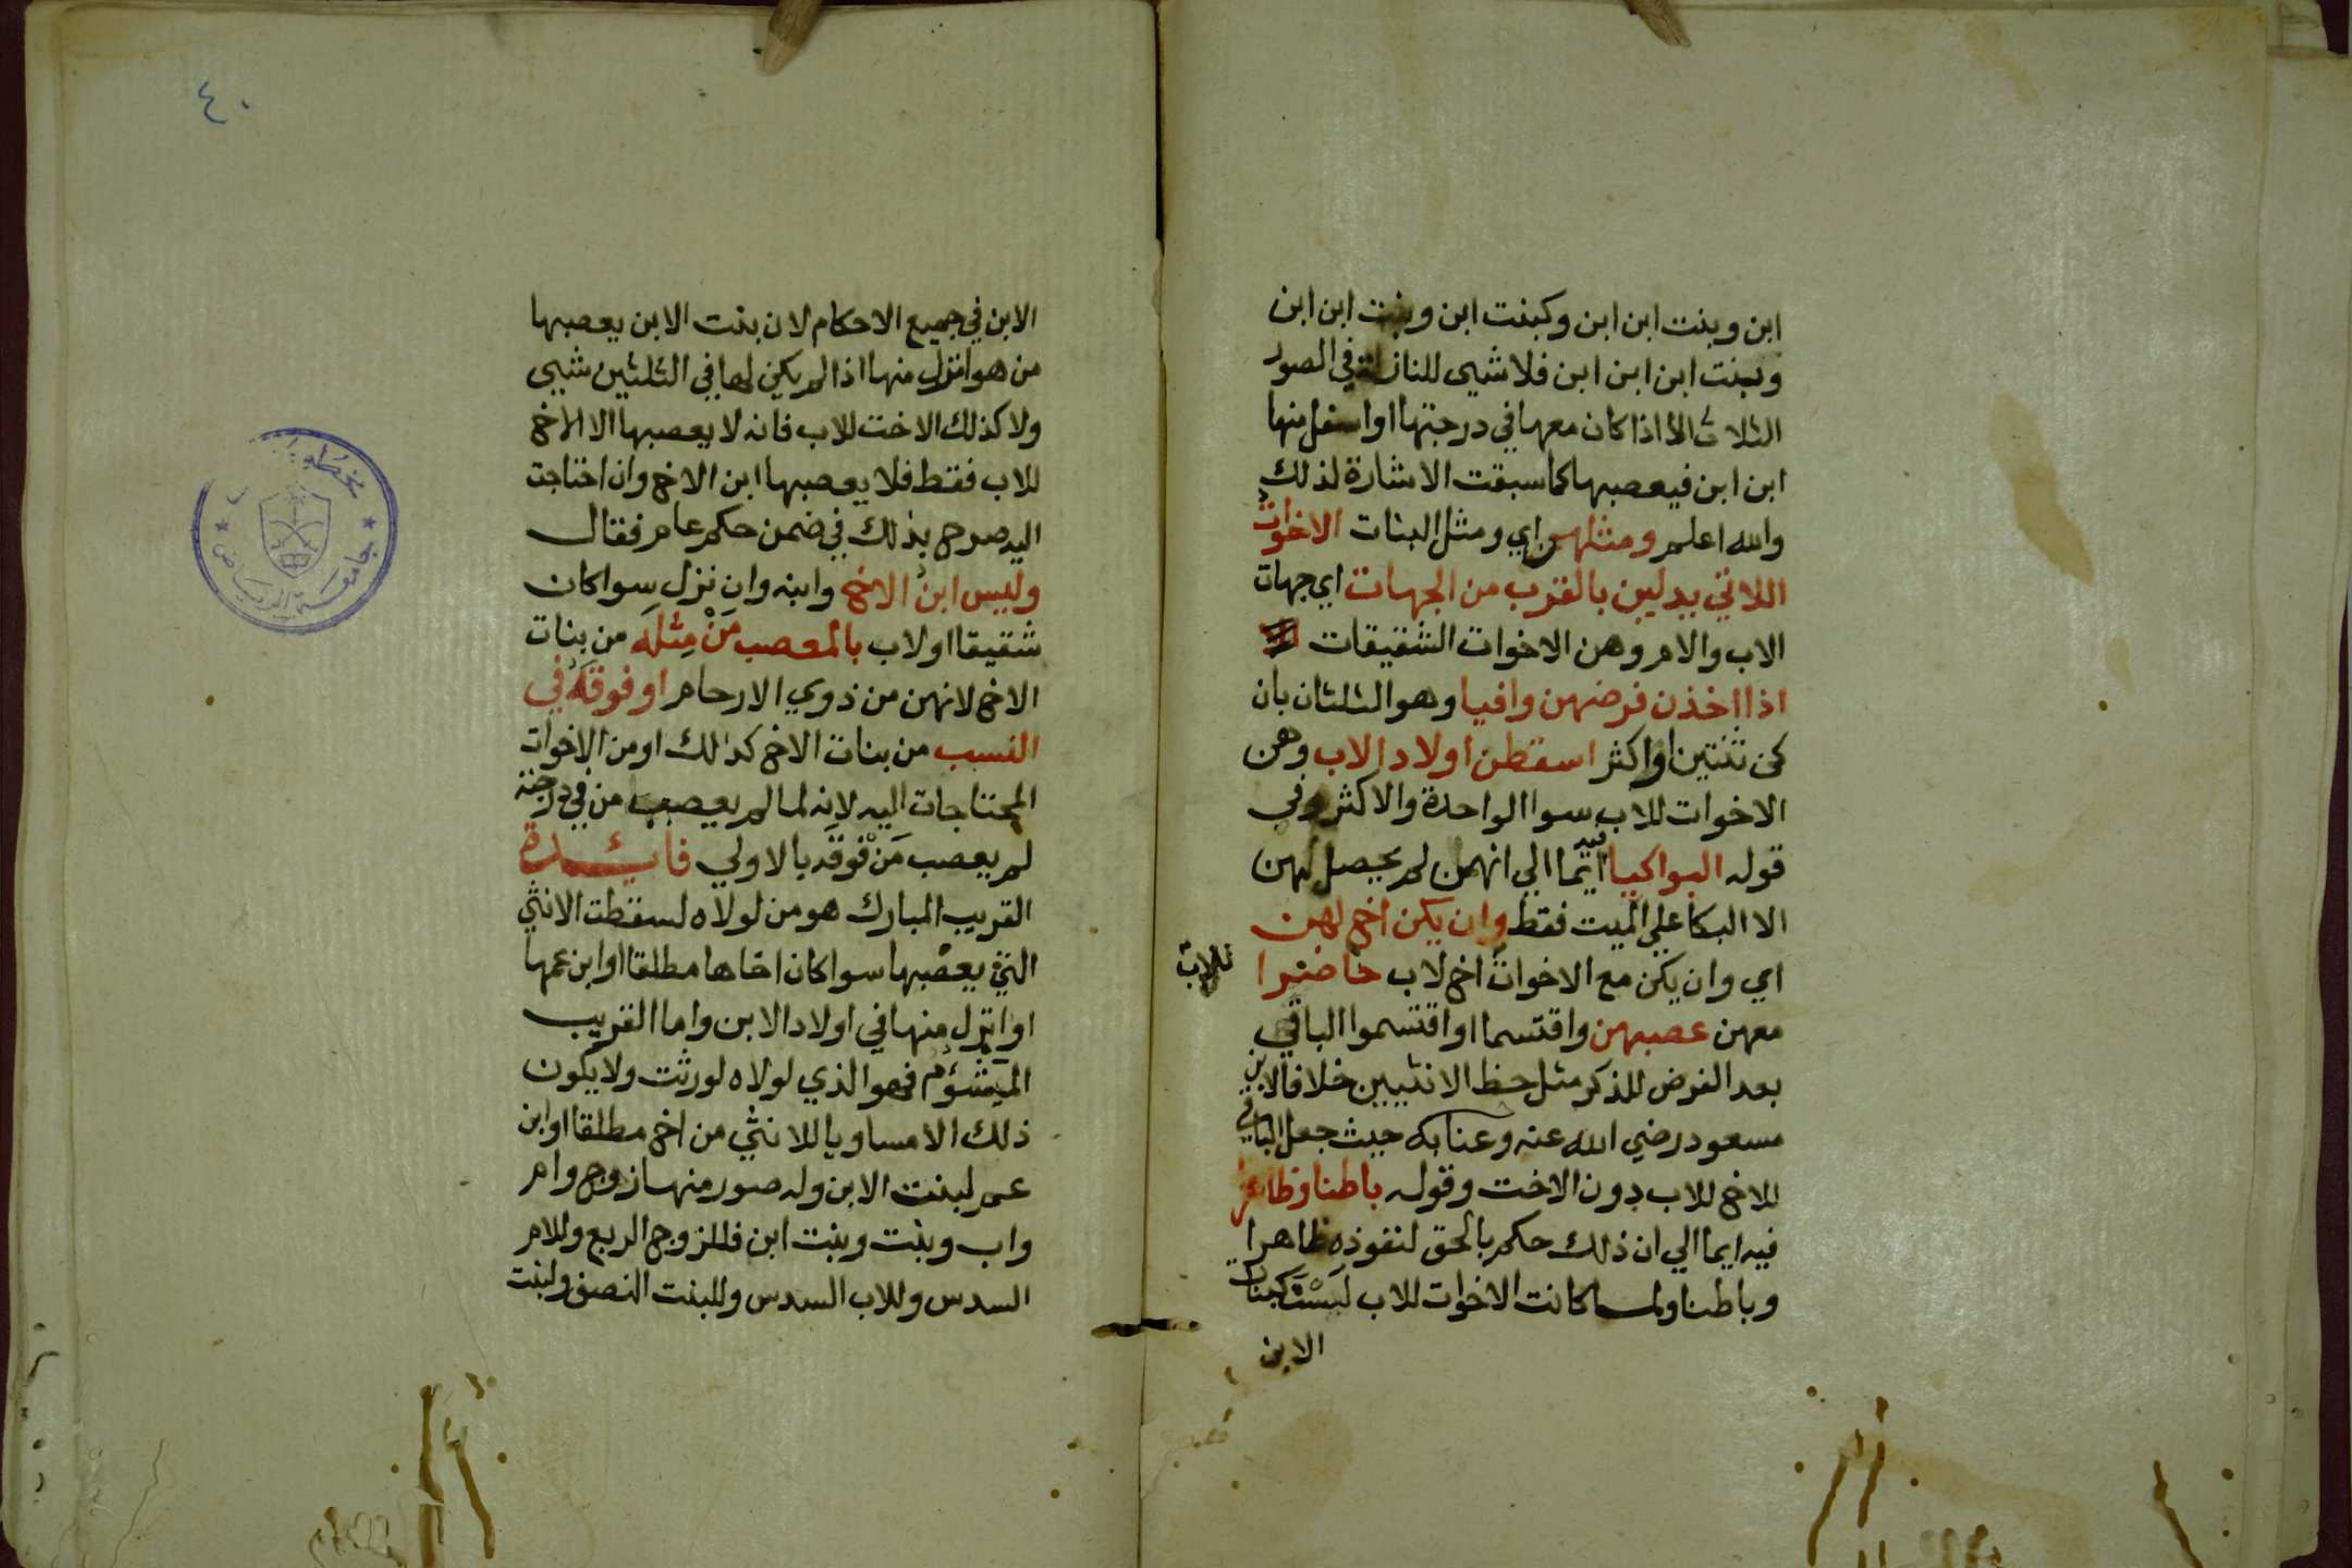 ابن وبنت ابن ابن وكبنت ابن وبنت ابن ابن
وبنت ابن ابن ابن فلا شيى للنازلة في الصور
الثلاث الا اذا كان معها في درجتها او اسفل منها
ابن ابن فيعصبها كما سبقت الاشارة لذلك
والله اعلم ومثلهن اي ومثل البنات الاخوات
اللاتي يدلين بالقرب من الجهات اي جهات
الاب والام وهن الاخوات الشقيقات
اذا اخذن فرضهن وافيا وهو الثلثان بان
كن ثنتين او اكثر اسقطن اولاد الاب وهن
الاخوات للاب سوا الواحدة والاكثر وفي
قوله البواكيا فيه ايما الي انهن لم يحصل لهن
الا البكا علي الميت فقط وان يكن اخ لهن
اي وان يكن مع الاخوات للاب اخ لاب حاضرا
معهن عصبهن واقتسما او اقتسموا الباقي
بعد الفرض للذكر مثل حظ الانثيين خلافا لابن
مسعود رضي الله عنه وعنا به حيث جعل الباقي
للاخ للاب دون الاخت وقوله باطنا وظاهرا
فيه ايما الي ان ذلك حكم بالحق لنفوذه ظاهرا
وباطنا ولما كانت الاخوات للاب ليست كبنات
الابن
٤٠
الابن في جميع الاحكام لان بنت الابن يعصبها
من هو انزل منها اذا لم يكن لها في الثلثين شيى
ولا كذلك الاخت للاب فانه لا يعصبها الا الاخ
للاب فقط فلا يعصبها ابن الاخ وان احتاجت
اليه صرح بذلك في ضمن حكم عام فقال
وليس ابن الاخ وابنه وان نزل سوا كان
شقيقا او لاب بالمعصب من مثله من بنات
الاخ لانهن من ذوي الارحام او فوقه في
النسب من بنات الاخ كذالك او من الاخوات
المحتاجات اليه لانه لما لم يعصب من في درجته
لم يعصب من فوقه بالاولي فائدة
القريب المبارك هو من لولاه لسقطت الانثي
التي يعصبها سوا كان اخاها مطلقا او ابن عمها
او انزل منها في اولاد الابن واما القريب
الميشؤم فهو الذي لولاه لورثت ولا يكون
ذلك الا مساويا للانثي من اخ مطلقا او ابن
عم لبنت الابن وله صور منها زوج وام
واب وبنت وبنت ابن فللزوج الربع وللام
السدس وللاب السدس وللبنت النصف ولبنت
جامعة الرياض